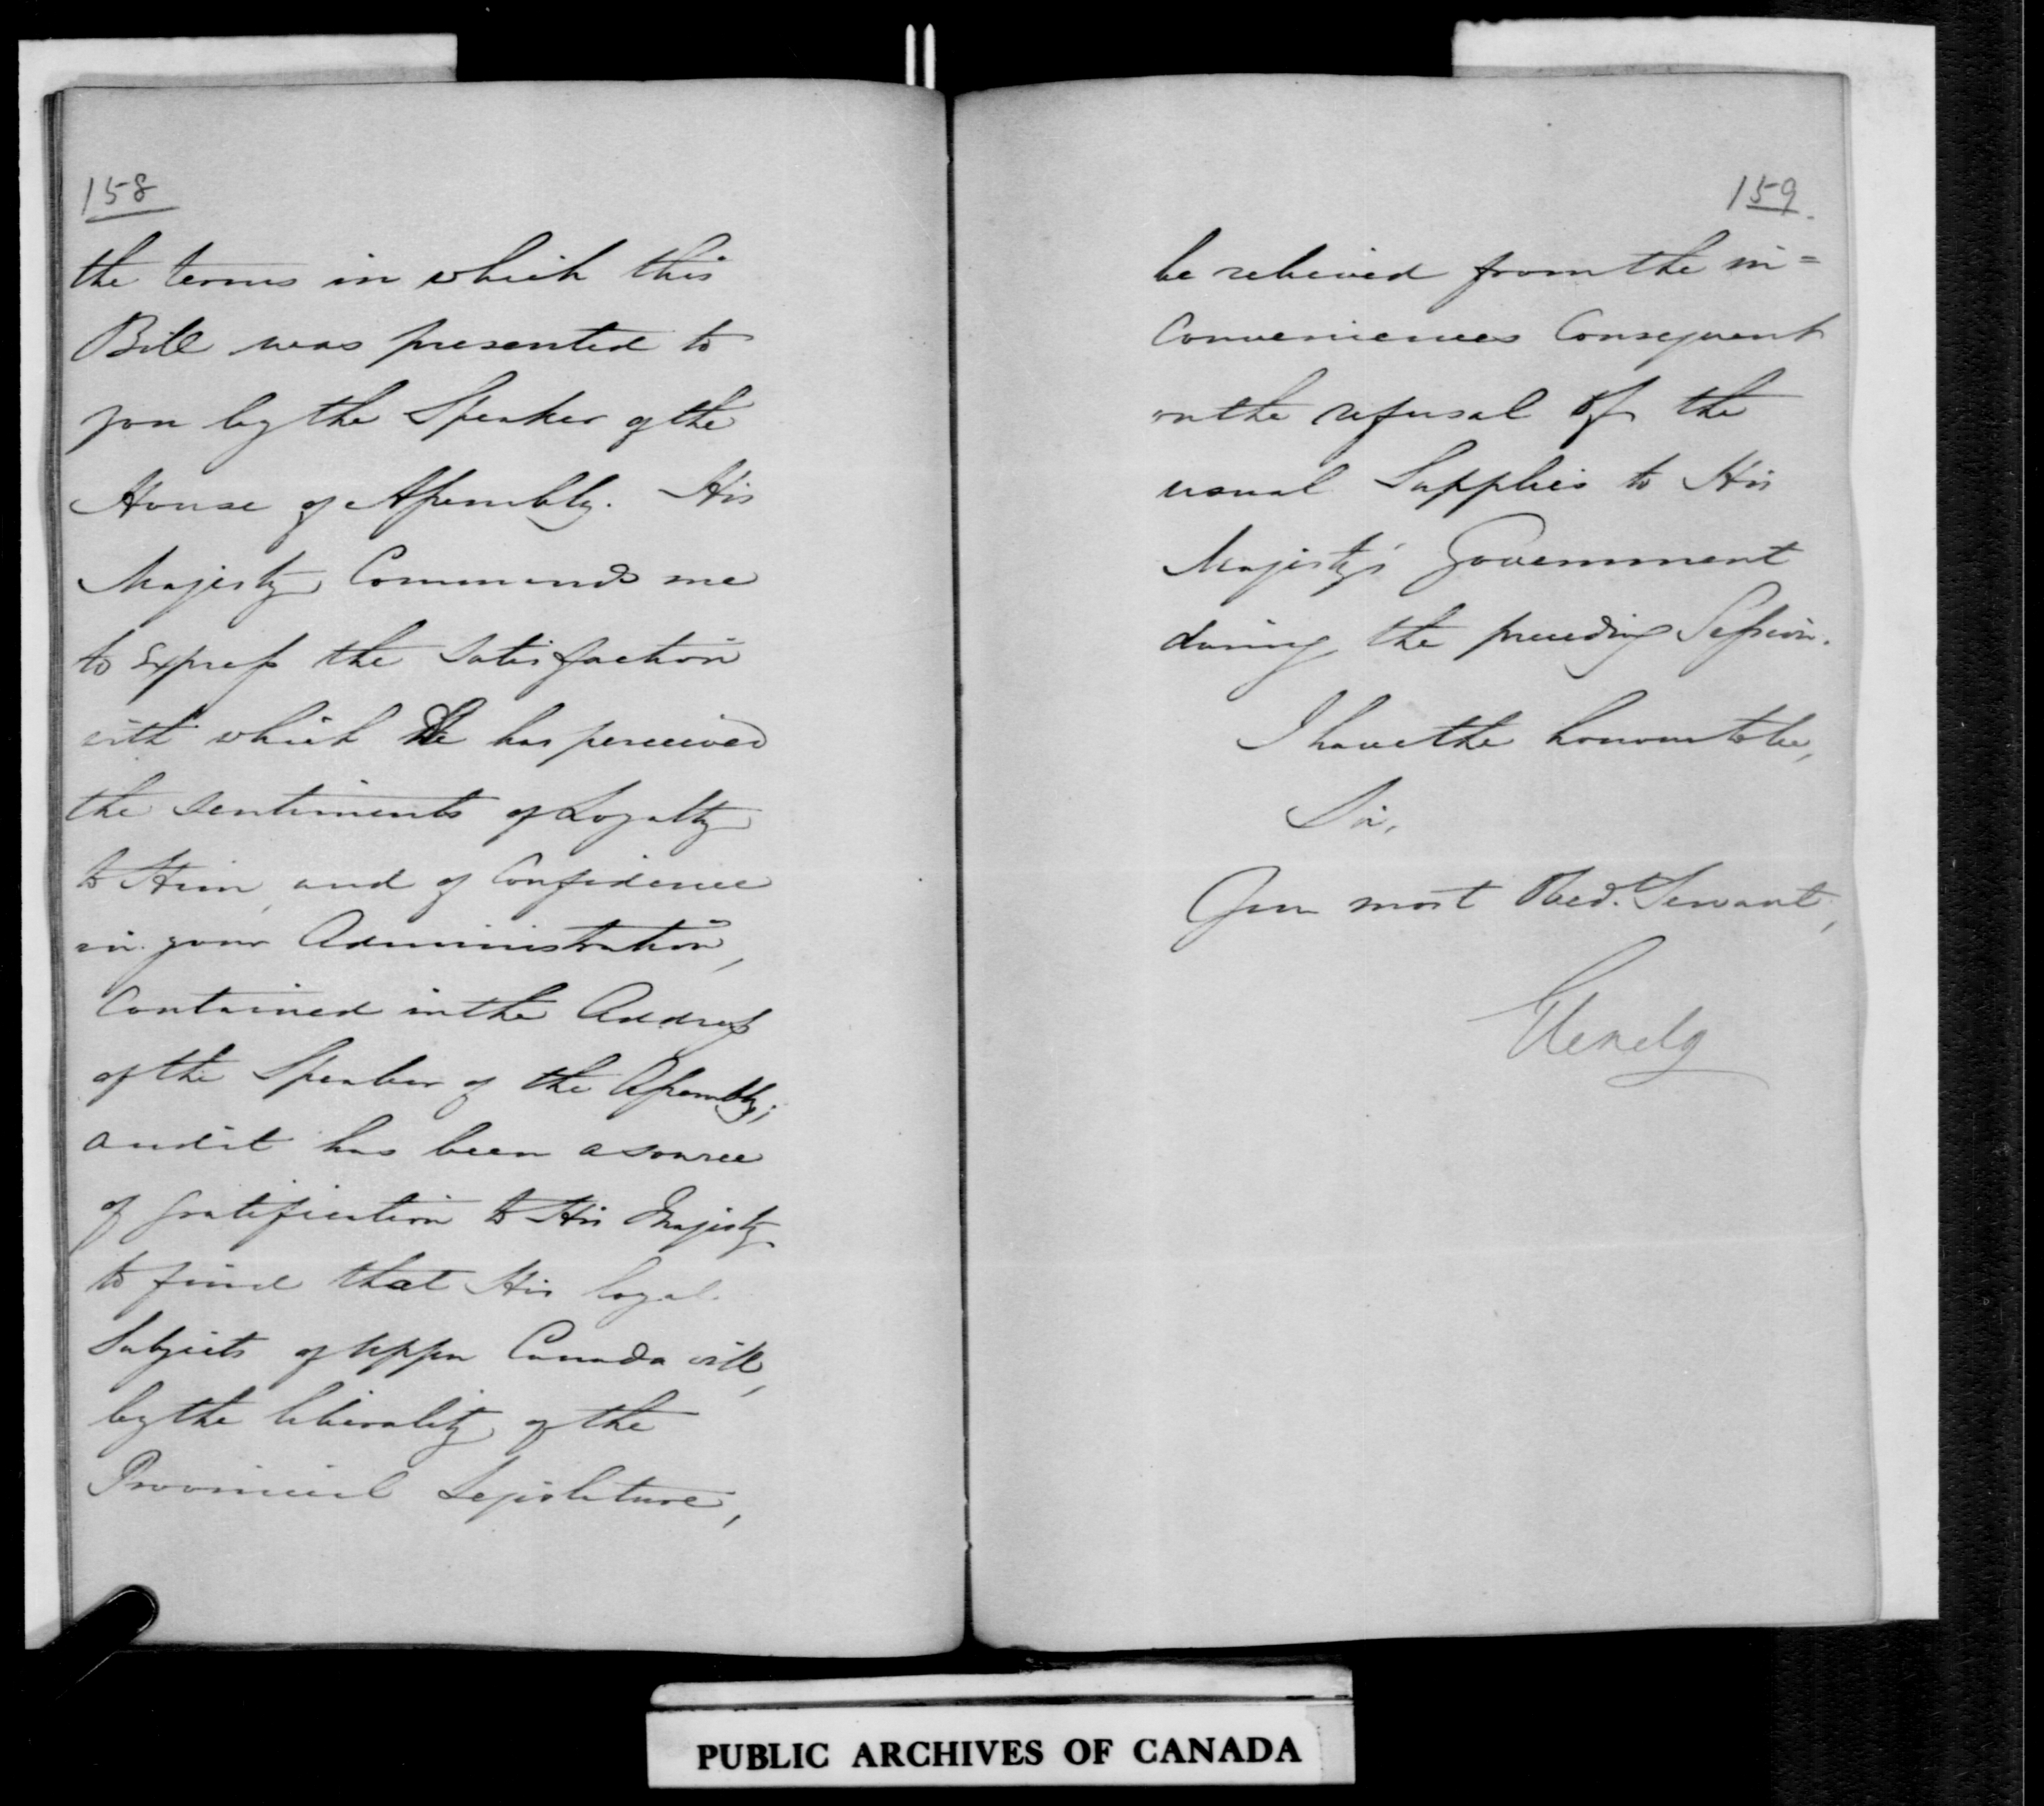 158
the terms in which this
Bill was presented to
you by the Speaker of the
House of Assembly. His
Majesty Commands me
to Express the satisfaction
with which He has perceived
the sentiments of Loyalty
to Him, and of Confidence
in your Administration,
Contained in the Address
of the Speaker of the Assembly;
and it has been a source
of gratification to His Majesty
to find that His loyal
Subjects of Upper Canada will,
by the liberality of the
Provincial Legislature,
159.
be relieved from the in=
Conveniences Consequent
on the refusal of the
usual Supplies to His
Majesty's Government
during the preceding Session.
I have the honour to be,
Sir,
Your most Obed. Servant,
Glenelg
PUBLIC ARCHIVES OF CANADA